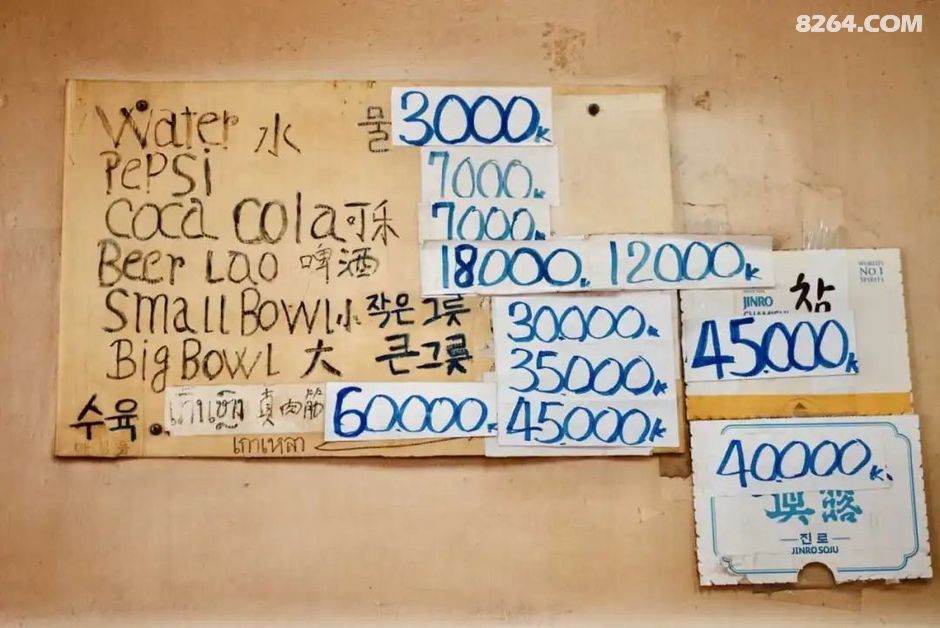 8264.COM
Water 水 물 3000K
PePSi 7000K
coca cola 可乐 7000K
Beer Lao 啤酒 18000K 12000K
Small Bowl 小 작은 그릇 30000K
Big Bowl 大 큰그릇 35.000K
수육 60.000K 45.000K
เกาเหลา
WORLD'S
NO.1
SPIRITS
참
JINRO
45.000K
40.000K
眞露
진로
JINRO SOJU